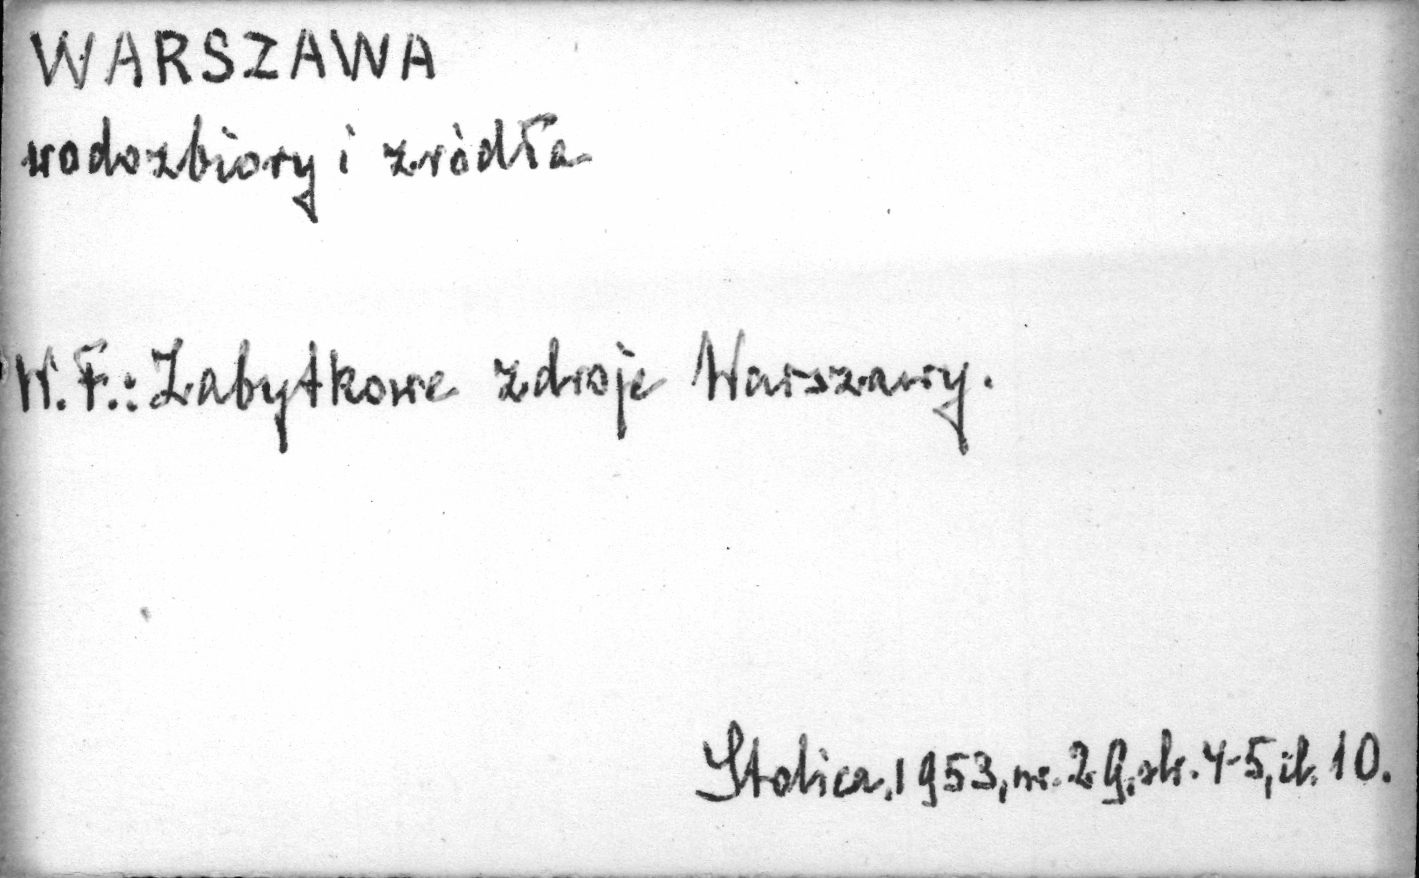 WARSZAWA
wodozbiory i zródła
W.F.: Zabytkowe zdroje Warszawy.
Stolica, 1953, nr. 29, str. 4-5, il. 10.